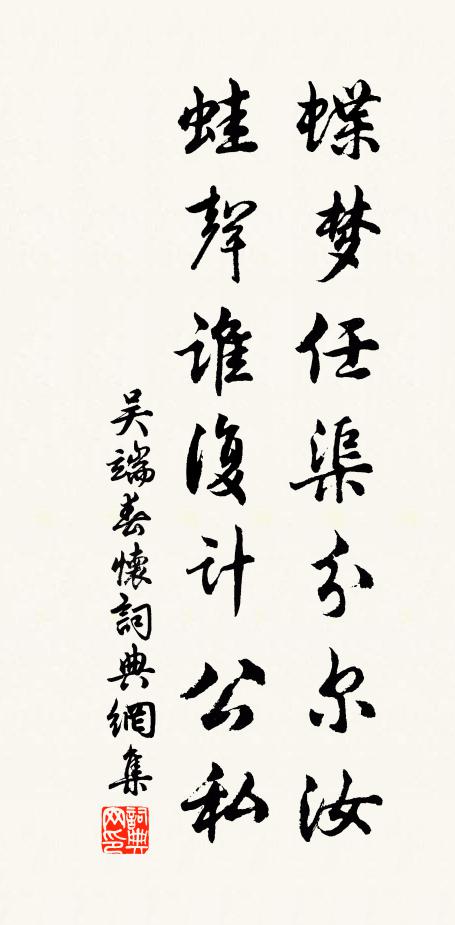 蝶梦任渠分尔汝
蛙聲谁復计公私
吴端春懷詞典網集
詞典网印